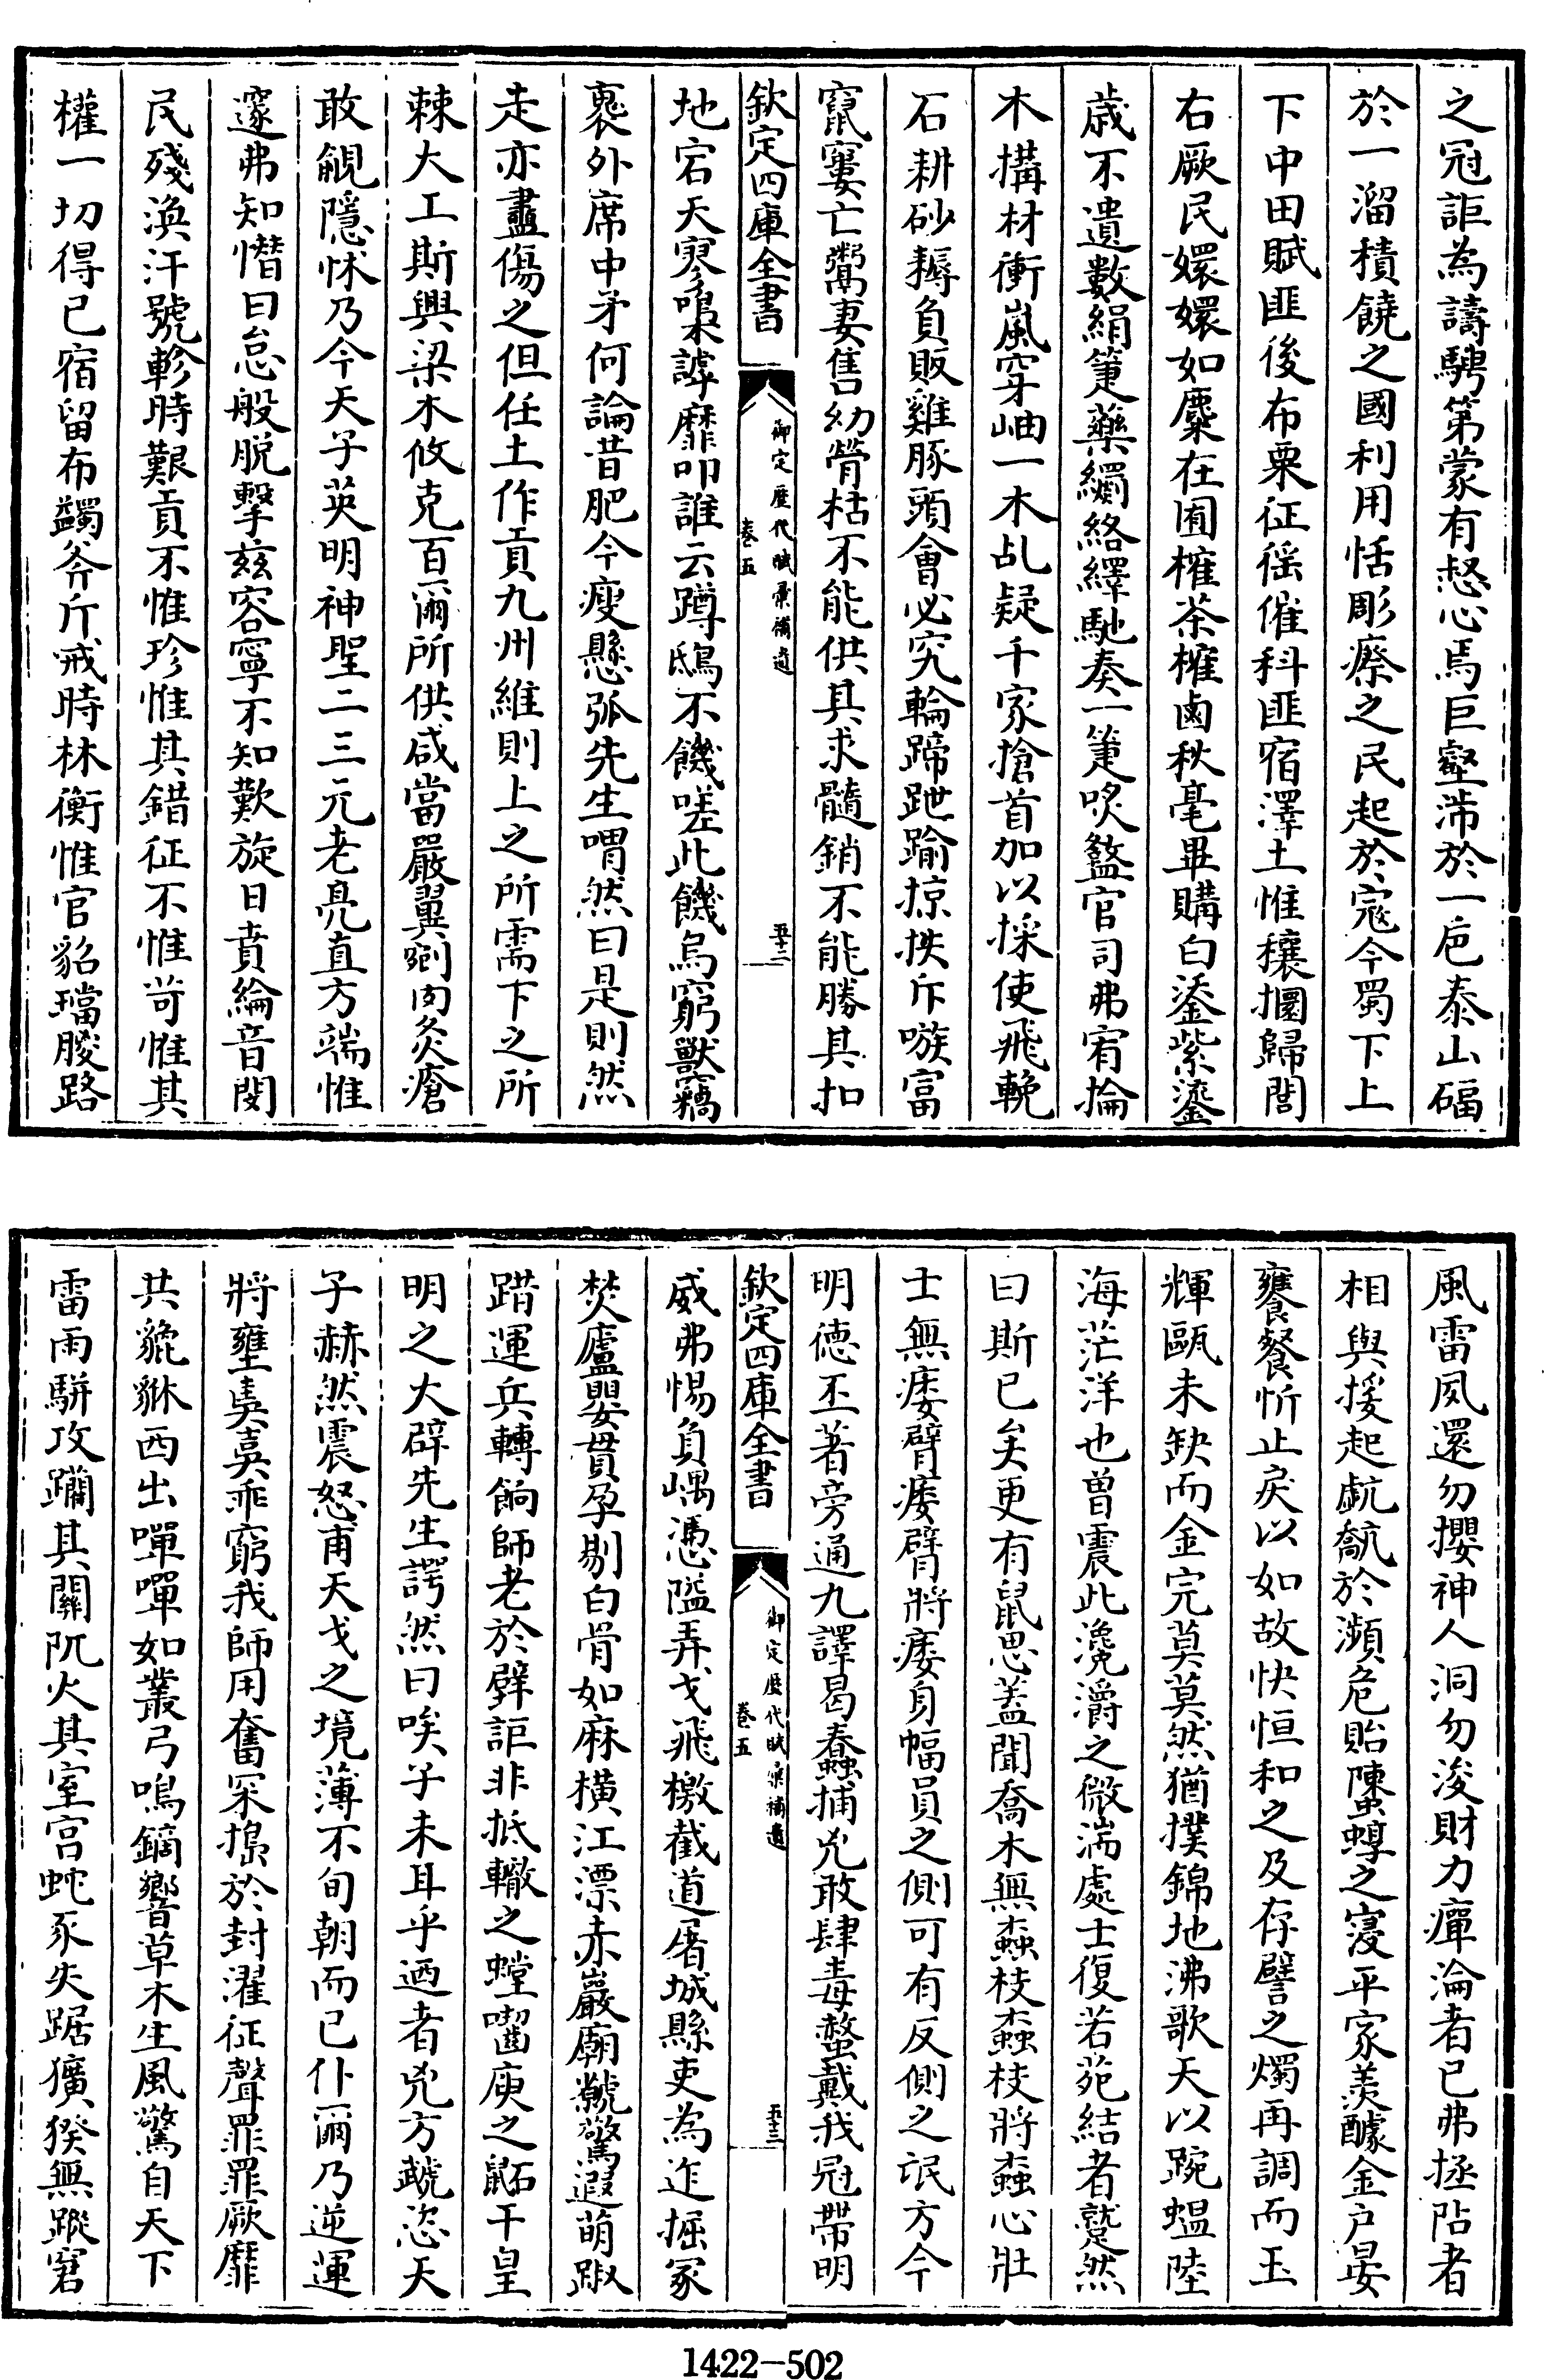 之冠詎為譸騁第蒙有惄心焉巨壑沛於一巵泰山碢
於一溜積饒之國利用恬彫瘵之民起於寇今蜀下上
下中田賦匪後布粟征徭催科匪宿澤土惟穰擱歸誾
右厥民嬛嬛如麋在囿榷茶榷鹵秋毫畢購白鋈紫鎏
歲不遺數絹箑藥繝絡繹馳奏一箑唊盭官司弗宥掄
木搆材衝嵐穿岫一木乩疑千家搶首加以採使飛輓
石耕砂耨負販雞豚頭會必究輪蹄跇踰掠抶斥嗾富
竄窶亡鬻妻售幼膋枯不能供其求髓銷不能勝其扣
欽定四庫全書
御定歷代賦彙補遺
卷五
五十二
地宕天寥嘄謼靡叩誰云蹲鴟不饑嗟此饑烏窮獸竊
褭外席中矛何論昔肥今瘦懸弧先生喟然曰是則然
走亦衋傷之但任土作貢九州維則上之所需下之所
棘大工斯興梁木攸克百爾所供咸當嚴翼剜肉灸瘡
敢覦隱怵乃今天子英明神聖二三元老亮直方端惟
邃弗知憯曰怠般脫擊茲容寧不知歎旋日賁綸音閔
民殘渙汗號軫時艱貢不惟珍惟其錯征不惟苛惟其
權一切得已宿留布蠲斧斤戒時林衡惟官貂璫朘路
風雷夙還勿攖神人洞勿浚財力癉淪者已弗拯阽者
相與援起虤虓於瀕危貽螴蜳之寖平家羨醵金戶晏
饔餐忻止戾以如故快恒和之及存譬之燭再調而玉
輝甌未缺而金完莫莫然猶撲錦地沸歌天以踠蝹陸
海茫洋也曽震此瀺灂之微湍處士復若菀結者蹵然
曰斯已矣更有鼠思蓋聞喬木無螙枝螙枝將螙心壯
士無痿臂痿臂將痿身幅員之側可有反側之氓方今
明德丕著旁通九譯曷蠢捕兇敢肆毒螫戴我冠帶明
欽定四庫全書
御定歷代賦彙補遺
卷五
五十三
威弗惕負嵎憑隘弄戈飛檄截道屠城縣吏為迮掘冢
焚廬嬰貫孕剔白骨如麻横江漂赤巖廟虩驚遐萌踧
踖運兵轉餉師老於擘詎非抵轍之螳囓庾之鼫干皇
明之大辟先生諤然曰唉子未耳乎迺者兇方虣恣天
子赫然震怒甫天戈之境薄不旬朝而已仆爾乃逆運
將壅奰奰乖窮我師用奮罙搗於封濯征聲罪罪厥靡
共貔貅西出嘽嘽如叢弓鳴鏑響草木生風驚自天下
雷雨駢攻躪其關阢火其室宫蛇豕失踞獷猤無蹤窘
1422-502